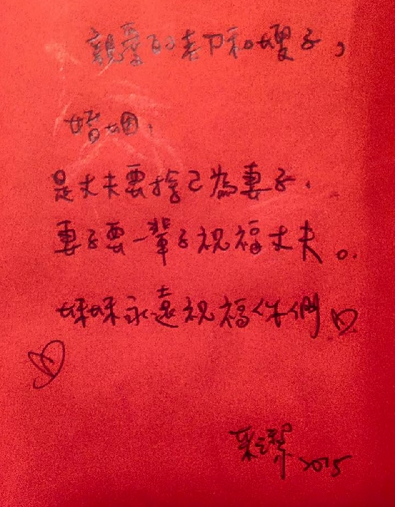 親愛的志刀和嫂子，
婚姻，
是丈夫要捨己為妻子，
妻子要一輩子祝福丈夫。
妹妹永遠祝福你們♡
♡
2015